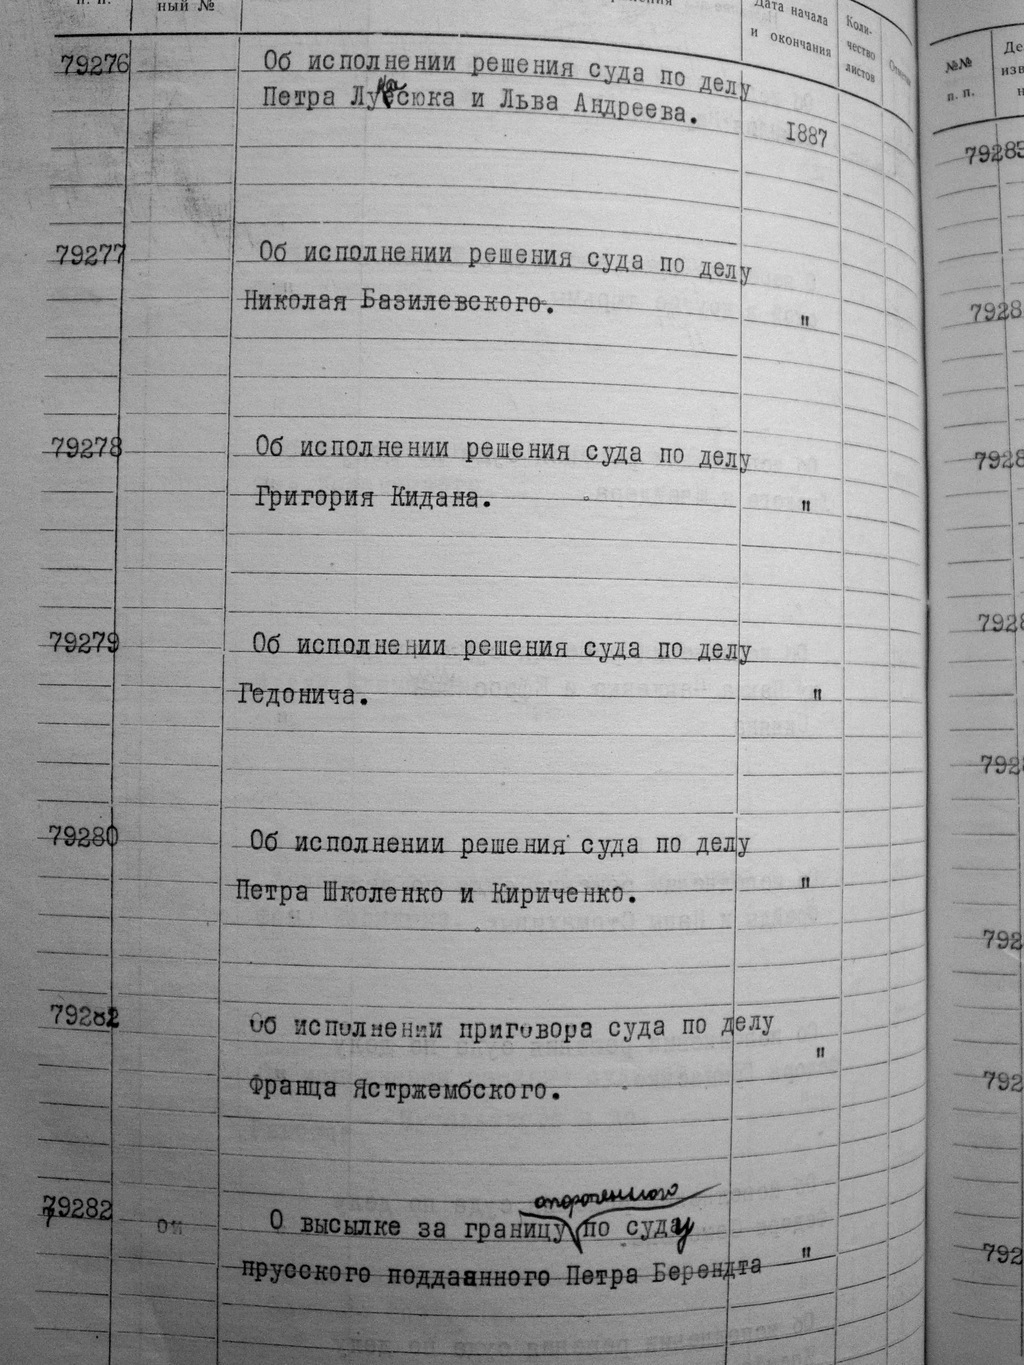 п. п.
ный №
Дата начала
и окончания
Коли-
чество
листов
79276
Об исполнении решения суда по делу
Петра Лукасюка и Льва Андреева.
1887
79277
Об исполнении решения суда по делу
Николая Базилевского.
"
79278
Об исполнении решения суда по делу
Григория Кидана.
"
79279
Об исполнении решения суда по делу
Гедонича.
"
79280
Об исполнении решения суда по делу
Петра Школенко и Кириченко.
"
Об исполнении приговора суда по делу
"
Франца Ястржембского.
79282
опороченного
О высылке за границу по суду
прусского подданного Петра Берендта
"
№№
п. п.
79283
7928
7928
7928
792
792
792
792